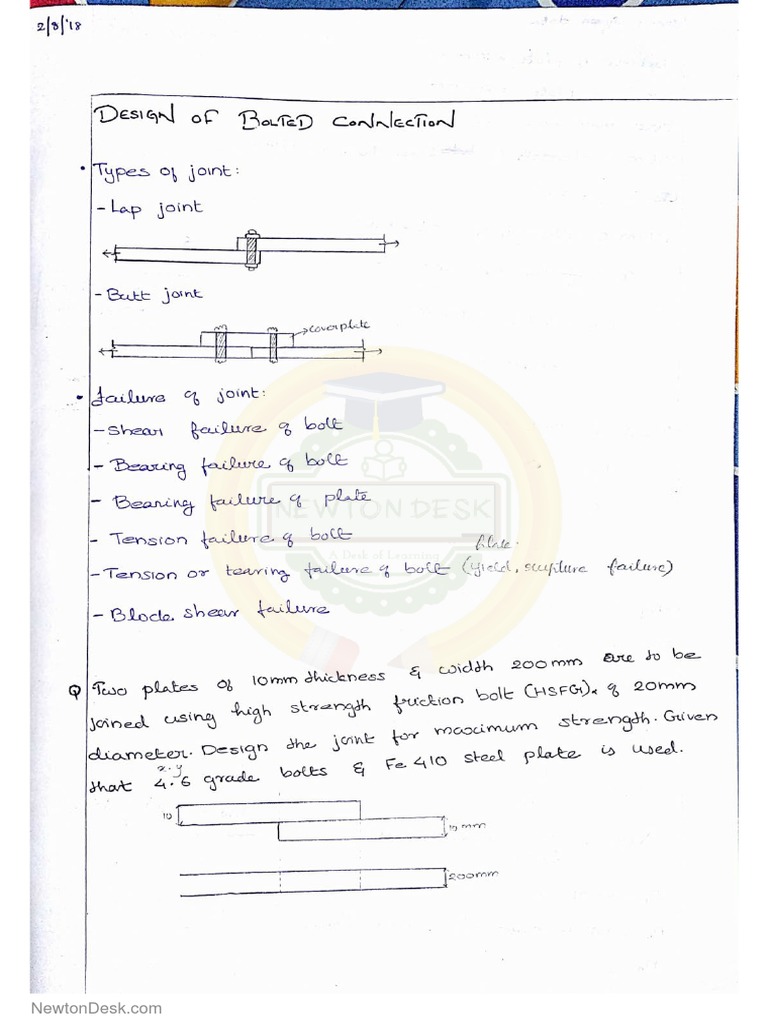 2/8/'18
DESIGN OF BOLTED CONNECTION
• Types of joint:
- Lap joint
- Butt joint
coverplate
• Failure of joint:
- Shear failure of bolt
- Bearing failure of bolt
- Bearing failure of plate
NEWTON DESK
- Tension failure of bolt
A Desk of Learning
plate.
- Tension or tearing failure of bolt (yield, rupture failure)
- Block shear failure
Q Two plates of 10mm thickness & width 200mm are to be
joined using high strength friction bolt (HSFG), of 20mm
diameter. Design the joint for maximum strength. Given
x.y
that 4.6 grade bolts & Fe 410 steel plate is used.
10
10 mm
200mm
NewtonDesk.com